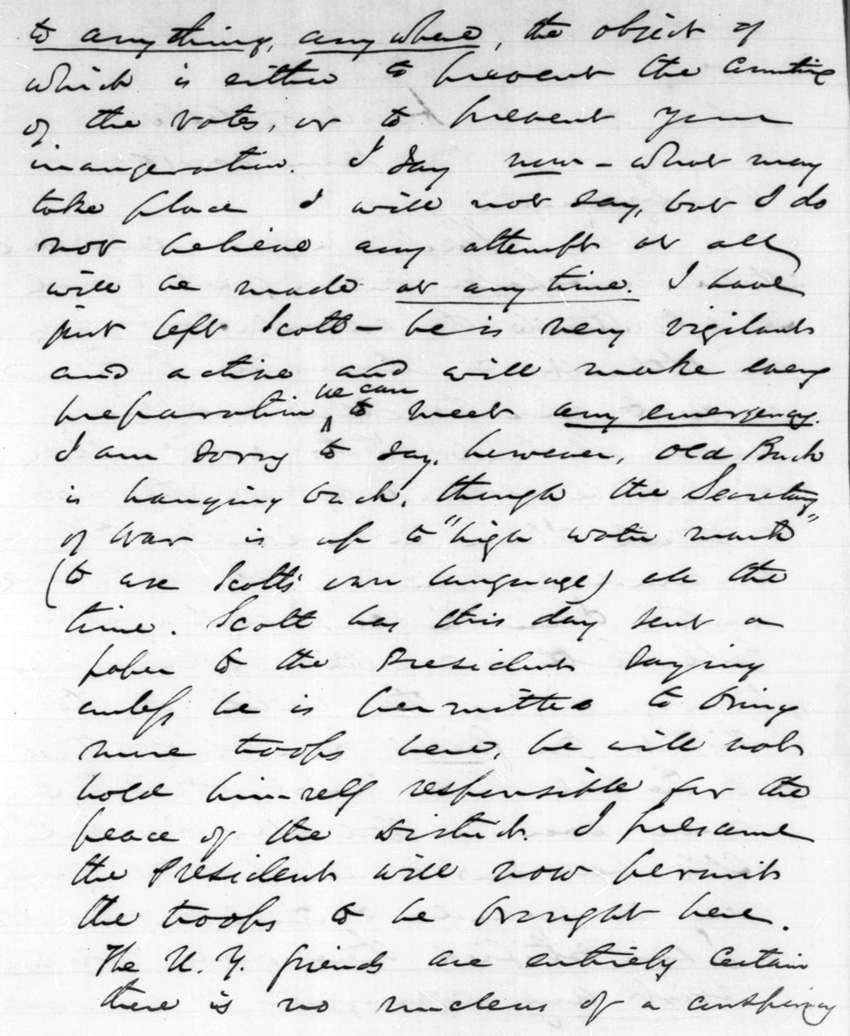 to any thing, any where, the object of
which is either to prevent the counting
of the votes, or to prevent your
inaugeration. I say now - what may
take place I will not say, but I do
not believe any attempt at all
will be made at any time. I have
just left Scott - he is very vigilant
and active and will make every
preparation he can to meet any emergency.
I am sorry to say, however, Old Buck
is hanging back, though the Secretary
of War is up to "high water mark"
(to use Scott's own language) all the
time. Scott has this day sent a
paper to the President saying
unless he is permitted to bring
more troops here, he will not
hold himself responsible for the
peace of the District. I presume
the President will now permit
the troops to be brought here.
The N. Y. friends are entirely certain
there is no nucleus of a conspiracy